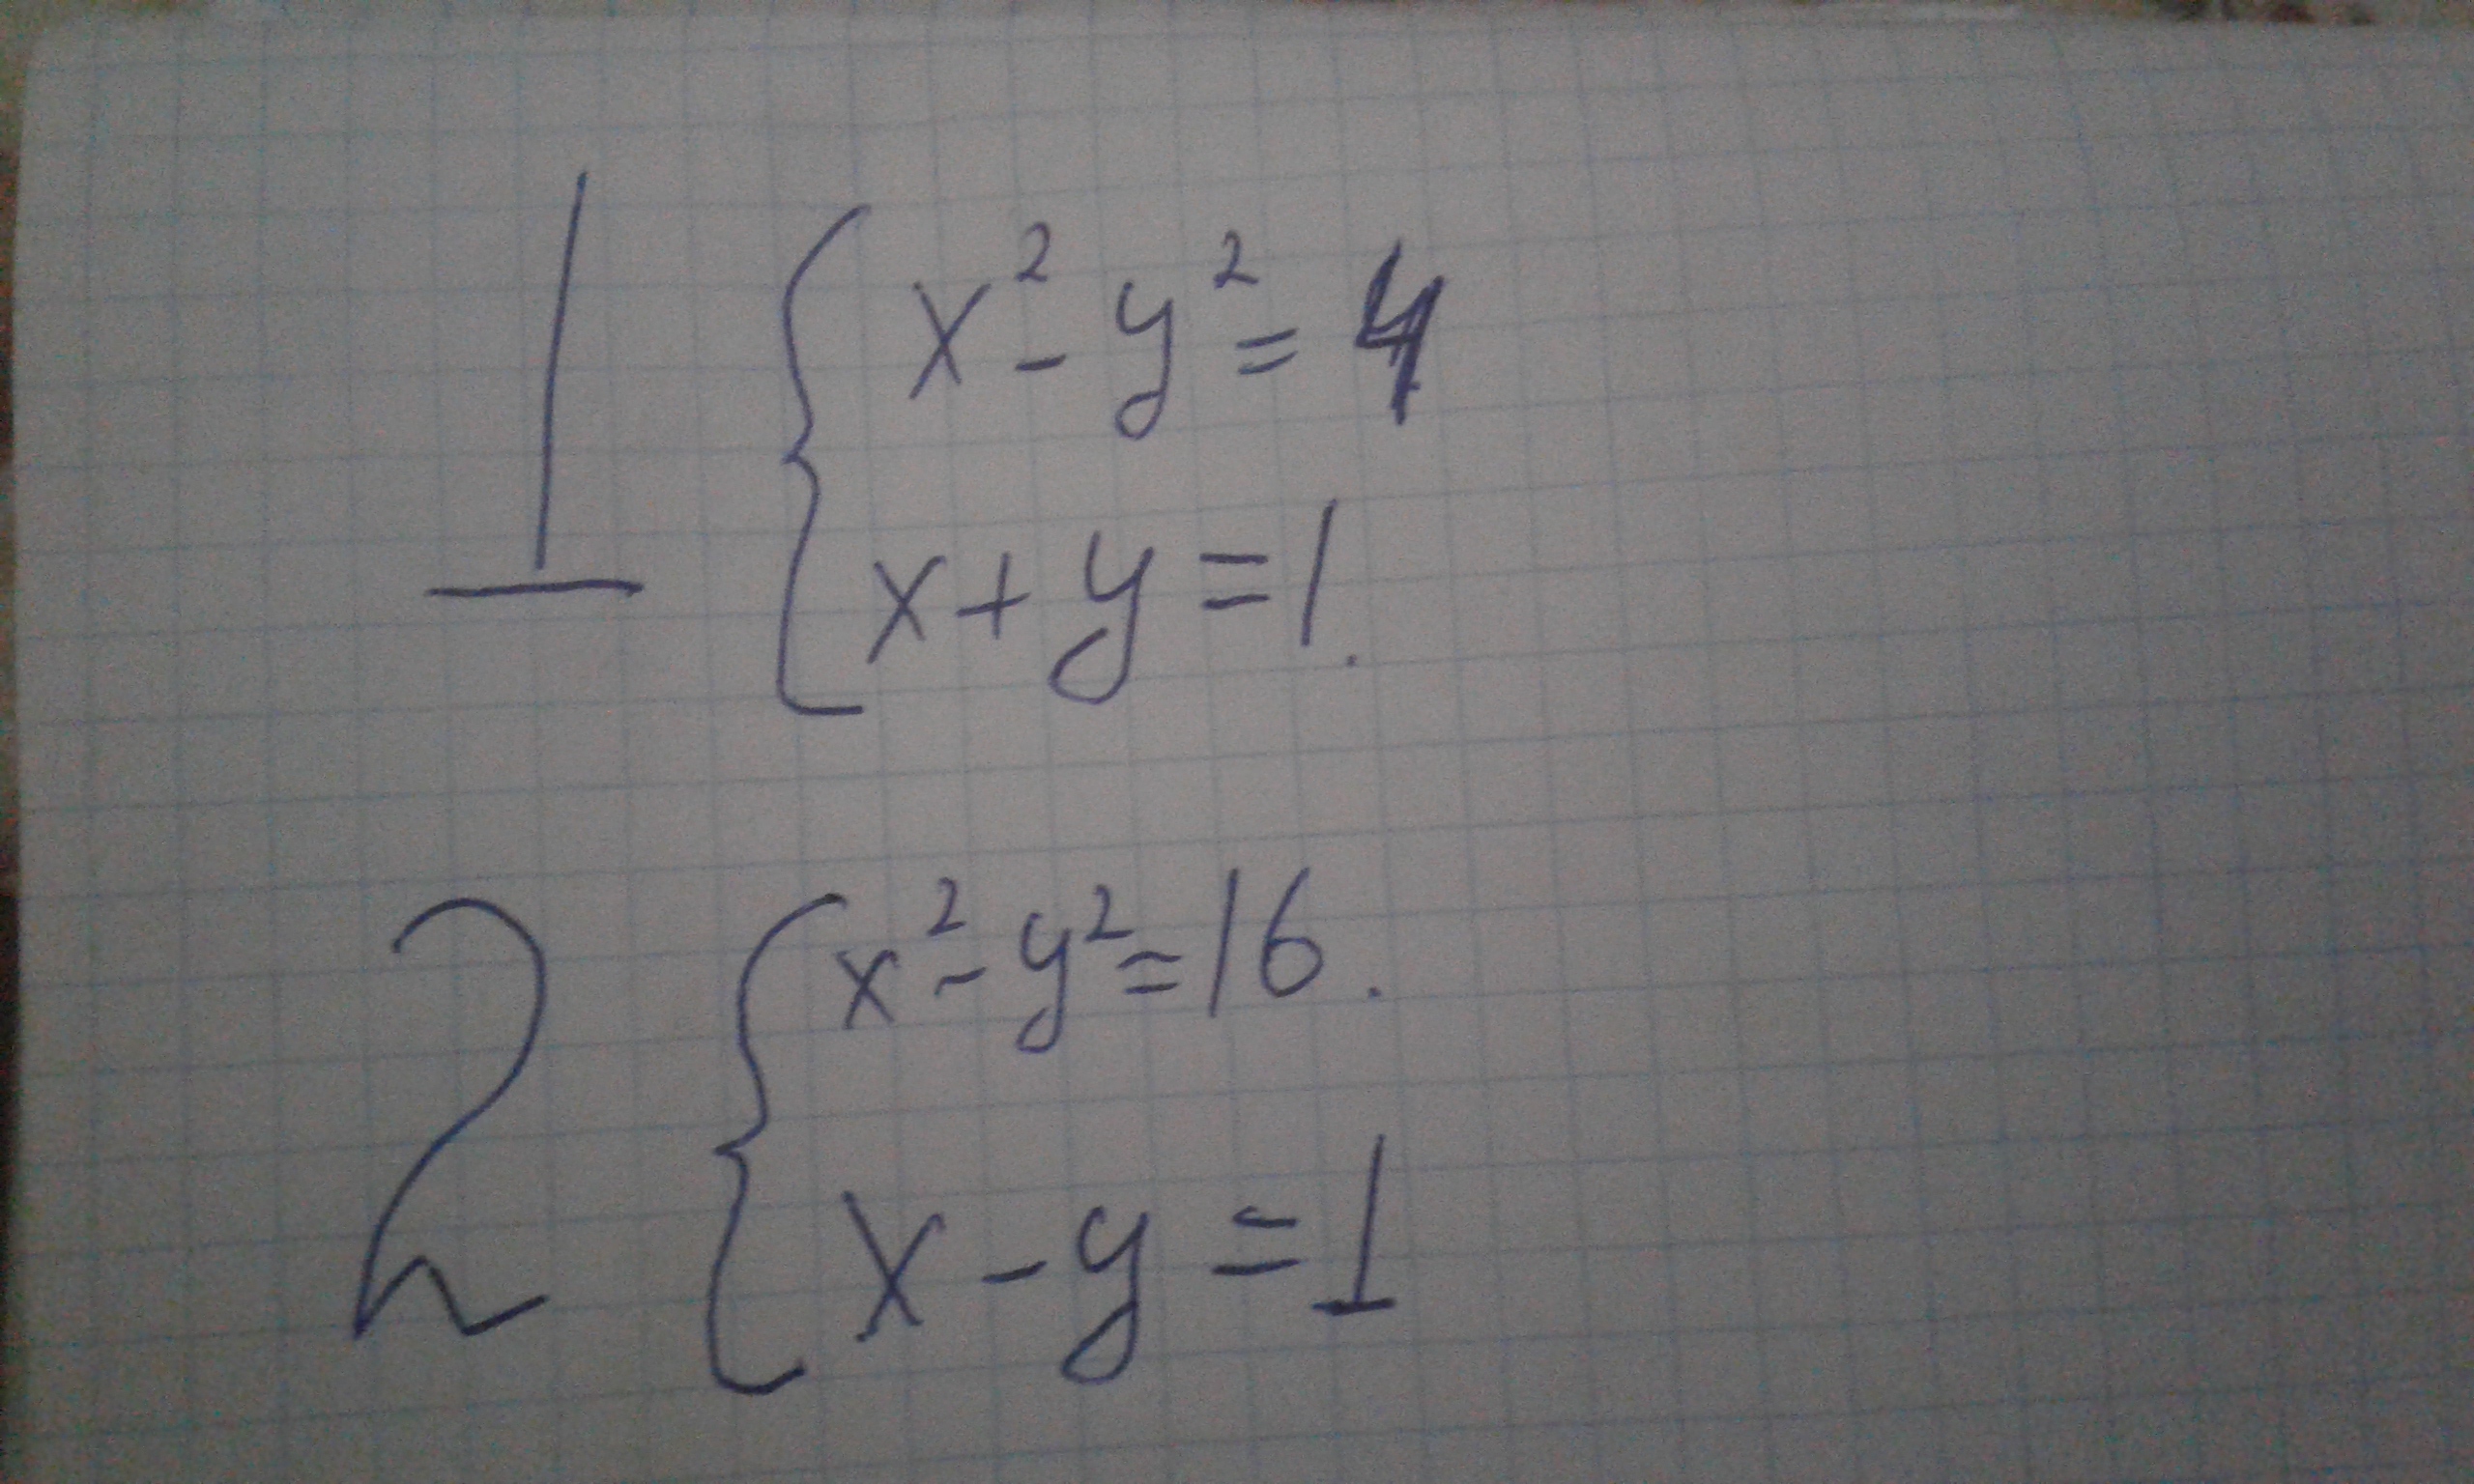 1
x² - y² = 4
x + y = 1.
2
x² - y² = 16.
x - y = 1